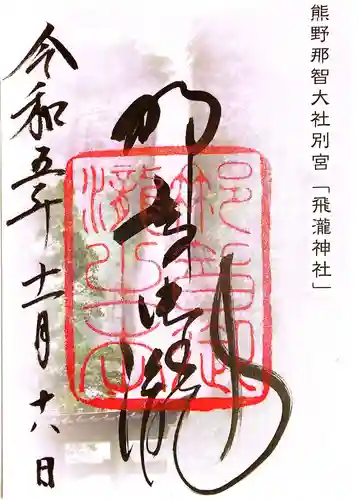 熊野那智大社別宮「飛瀧神社」
那智御瀧
令和五年十一月十八日